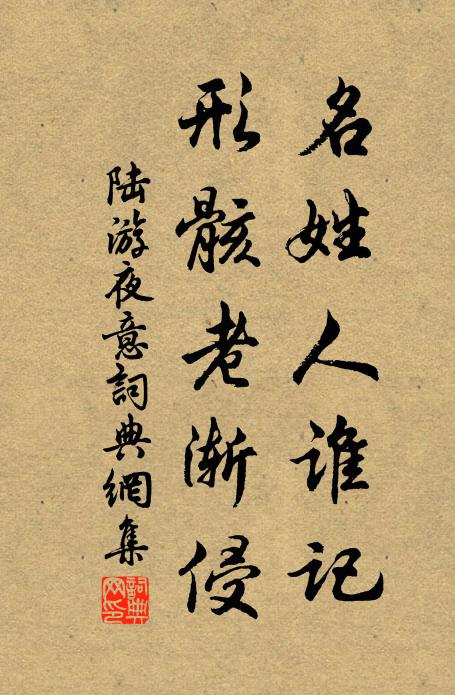 名姓人谁记
形骸老渐侵
陆游夜意詞典網集
詞典网印